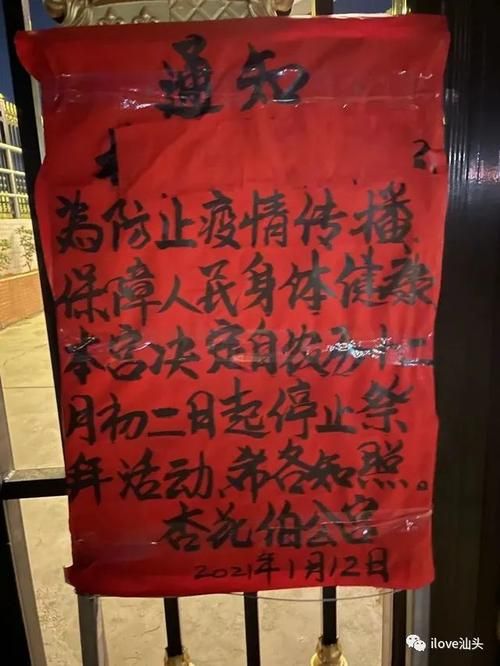 通知
為防止疫情传播
保障人民身体健康
本宫决定自农历十二
月初二日起停止祭
拜活动,希各知照。
杏花伯公宫
2021年1月12日
ilove汕头